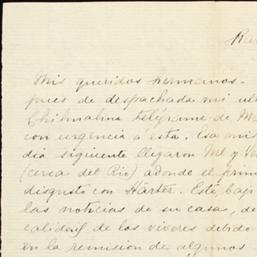 Mis queridos hermanos.
pues de despachada mi
Chihuahua telégrama de
con urgencia a ésta. Esa mis
día siguiente llegaron Ml y
(cerca del Rio) adonde el prim
disgusto con Harter. Este, bajo
las noticias de su casa, de
calidad de los viveres debido
en la remision de algunos